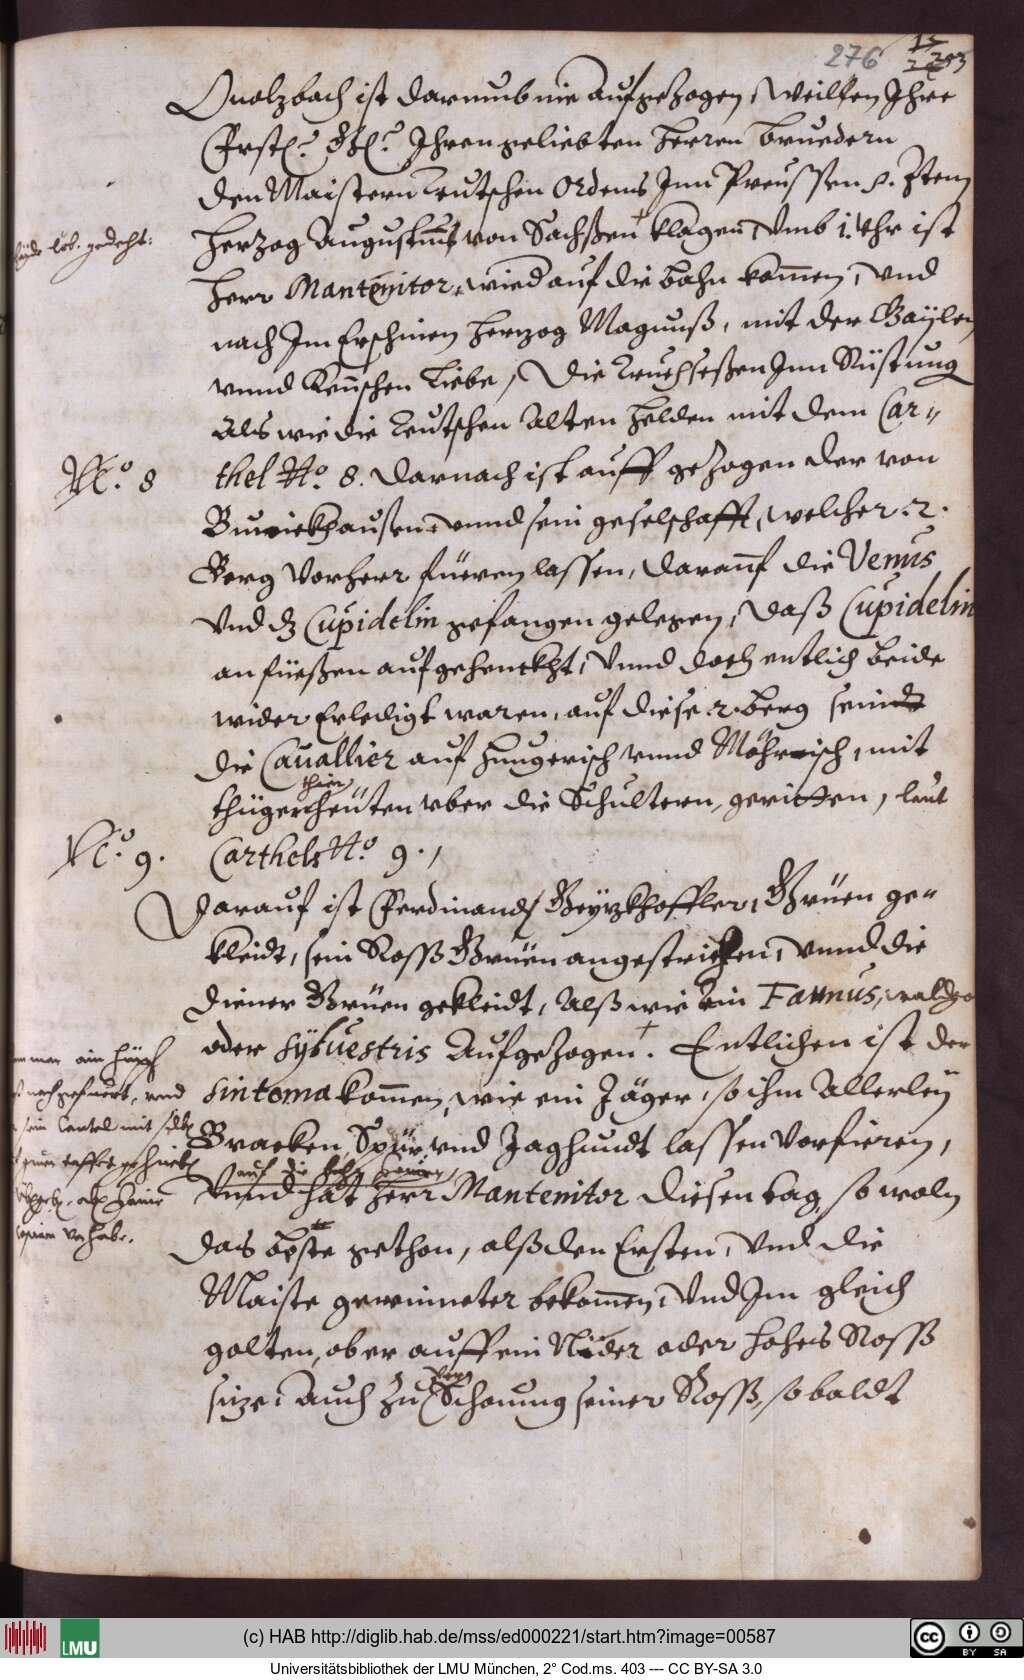 276
253
Onolzbach ist darumb nie Aufgezogen, Weillen Ihre
Frstl: Gl: Ihren geliebten Herren bruedern
den Maistern Teutschen Ordens Inn Preussen p. Item
Herzog Augustum von Sachßen klagen Vmb 1. Vhr ist
Herr Mantenitor, wied auf die bahn kom̄en, Vnd
nach Im Erschinen Herzog Magnuß, mit der Gaÿlen
vnnd Keuschen Liebe, Die Truchseßen Inn Rüstung
als wie die Teutschen Alten Helden mit dem Car-
No. 8
thel No. 8. Darnach ist auff gezogen der von
Buwickhaußen vnnd sein geselschafft, welcher .2.
Berg Vorherr füeren lassen, darauf die Venus
Vnd dz Cupidelin gefangen gelegen, Daß Cupidelin
an füeßen aufgehenckht, Vnnd doch entlich beide
wider Erledigt waren, auf diese .2. berg seind
die Cauallier auf Hungerisch vnnd Möhrisch, mit
thier
thügerheüten vber die Schultern, geritten, laut
No. 9.
Carthels No. 9.,
Darauf ist Ferdinand Geyzkhoffler, Grüen ge-
kleidt, sein Ross Grüen angestrichen, vnnd die
diener Grüen gekleidt, Alß wie ein Faunus, waldgo
oder Syluestris Aufgezogen. Entlichen ist der
Sintoma kom̄en, wie ein Jäger, so ihm Allerleÿ
Bracken, Spür vnd Jaghundt lassen Vorfieren,
auf die
Vnnd hat Herr Mantenitor diesen tag, so woln
das beste gethon, alß den Ersten, Vnd die
Maiste gewinneter bekom̄en, Vnd Im gleich
golten, ob er auff ein Nider oder hohes Ross
size, Auch zu Schonung seiner Ross, so baldt
(c) HAB http://diglib.hab.de/mss/ed000221/start.htm?image=00587
LMU
cc BY SA
Universitätsbibliothek der LMU München, 2° Cod.ms. 403 --- CC BY-SA 3.0